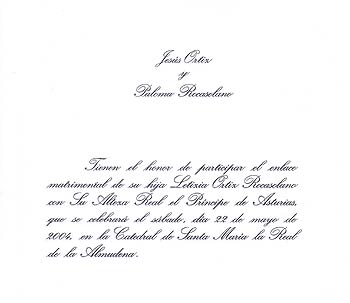 Jesús Ortiz
y
Paloma Rocasolano
Tienen el honor de participar el enlace
matrimonial de su hija Letizia Ortiz Rocasolano
con Su Alteza Real el Príncipe de Asturias,
que se celebrará el sábado, día 22 de mayo de
2004, en la Catedral de Santa María la Real
de la Almudena.